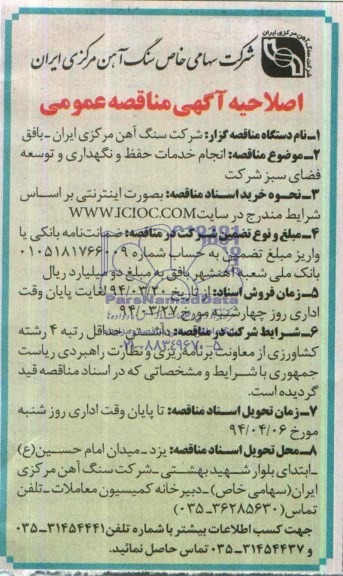 شرکت سنگ آهن مرکزی ایران
شرکت سهامی خاص سنگ آهن مرکزی ایران
اصلاحیه آگهی مناقصه عمومی
۱ـ نام دستگاه مناقصه گزار: شرکت سنگ آهن مرکزی ایران ـ بافق
۲ـ موضوع مناقصه: انجام خدمات حفظ و نگهداری و توسعه
فضای سبز شرکت
۳ـ نحوه خرید اسناد مناقصه: بصورت اینترنتی بر اساس
شرایط مندرج در سایت WWW.ICIOC.COM
۴ـ مبلغ و نوع تضمین شرکت در مناقصه: ضمانت‌نامه بانکی یا
واریز مبلغ تضمین به حساب شماره
بانک ملی شعبه آهنشهر بافق به مبلغ دو میلیارد ریال
۵ـ زمان فروش اسناد: از تاریخ ۹۴/۰۳/۲۰ لغایت پایان وقت
اداری روز چهارشنبه مورخ ۹۴/۰۳/۲۷
۶ـ شرایط شرکت در مناقصه: داشتن حداقل رتبه ۴ رشته
کشاورزی از معاونت برنامه‌ریزی و نظارت راهبردی ریاست
جمهوری با شرایط و مشخصاتی که در اسناد مناقصه قید
گردیده است.
۷ـ زمان تحویل اسناد مناقصه: تا پایان وقت اداری روز شنبه
مورخ ۹۴/۰۴/۰۶
۸ـ محل تحویل اسناد مناقصه: یزد ـ میدان امام حسین(ع)
ـ ابتدای بلوار شهید بهشتی ـ شرکت سنگ آهن مرکزی
ایران(سهامی خاص) ـ دبیرخانه کمیسیون معاملات ـ تلفن
تماس(۳۶۲۸۵۶۳۰ـ۰۳۵)
جهت کسب اطلاعات بیشتر با شماره تلفن ۳۱۴۵۴۴۴۱ـ۰۳۵
و ۳۱۴۵۴۴۳۷ـ۰۳۵ تماس حاصل نمائید.
ParsNamadData
۰۲۱-۸۸۳۴۹۶۷۰-۵